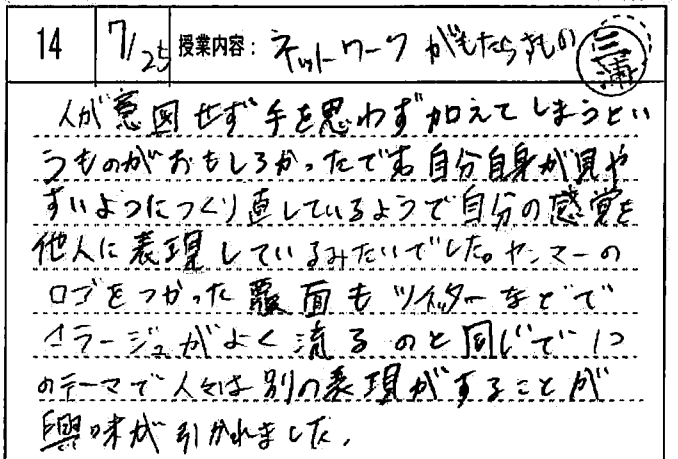 14 7/25 授業内容: ネットワークがもたらすもの 三浦
人が意図せず手を思わず加えてしまうとい
うものがおもしろかったです。自分自身が見や
すいようにつくり直しているようで自分の感覚を
他人に表現しているみたいでした。ヤンマーの
ロゴをつかった覆面もツイッターなどで
コラージュがよく流るのと同じで1つ
のテーマで人々は別の表現がすることが
興味が引かれました。